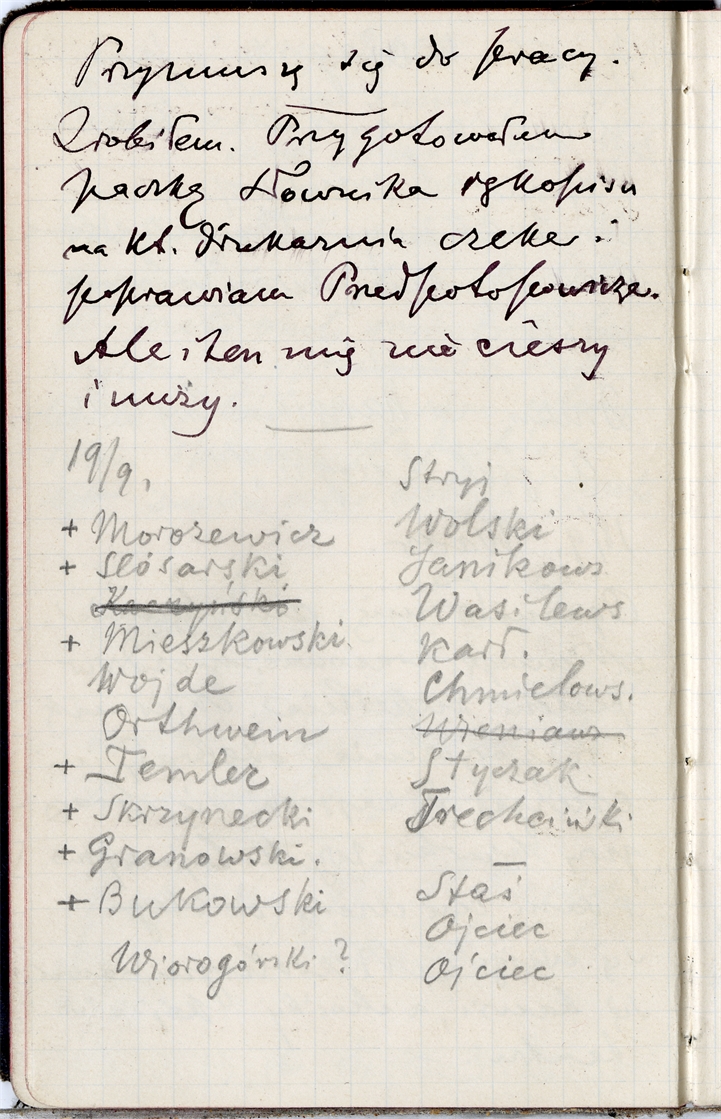 Przymuszę się do pracy.
Zrobiłem. Przygotowałem
paczkę Słownika rękopisu
na Kt. drukarnia czeka i
poprawiam Przedpotopowicze.
Ale i ten mię nie cieszy
i nuży.
19/9.
+ Morozewicz
+ Slósarski
Kaczyński
+ Mieszkowski.
Wojde
Orthwein
+ Temler
+ Skrzynecki
+ Granowski.
+ Bukowski
Wjorogórski ?
Stryj
Wolski
Janikows
Wasilews
Karł.
Chmielows.
Wieniaws
Styczak
Trechciński
Staś
Ojciec
Ojciec